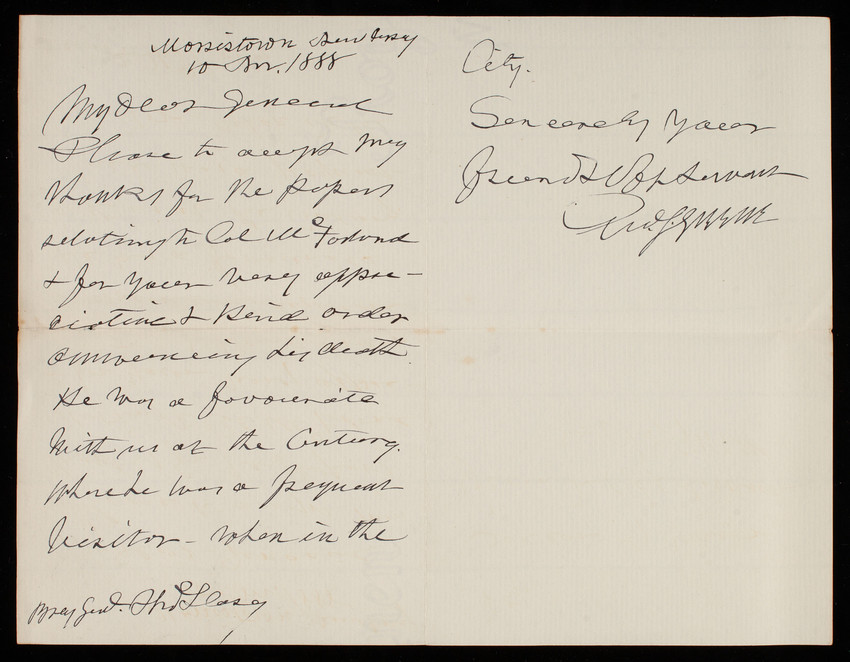 Morristown New Jersey
10 Nov. 1888
My dear General
Please to accept my
thanks for the papers
relating to Col McFarland
& for your very appre-
ciative & kind order
announcing his death.
He was a favourite
with us at the Century.
where he was a frequent
visitor - when in the
Brig Genl. Thos L Casey
City.
Sincerely Your
friend & Obt Servant
Geo. S. Greene